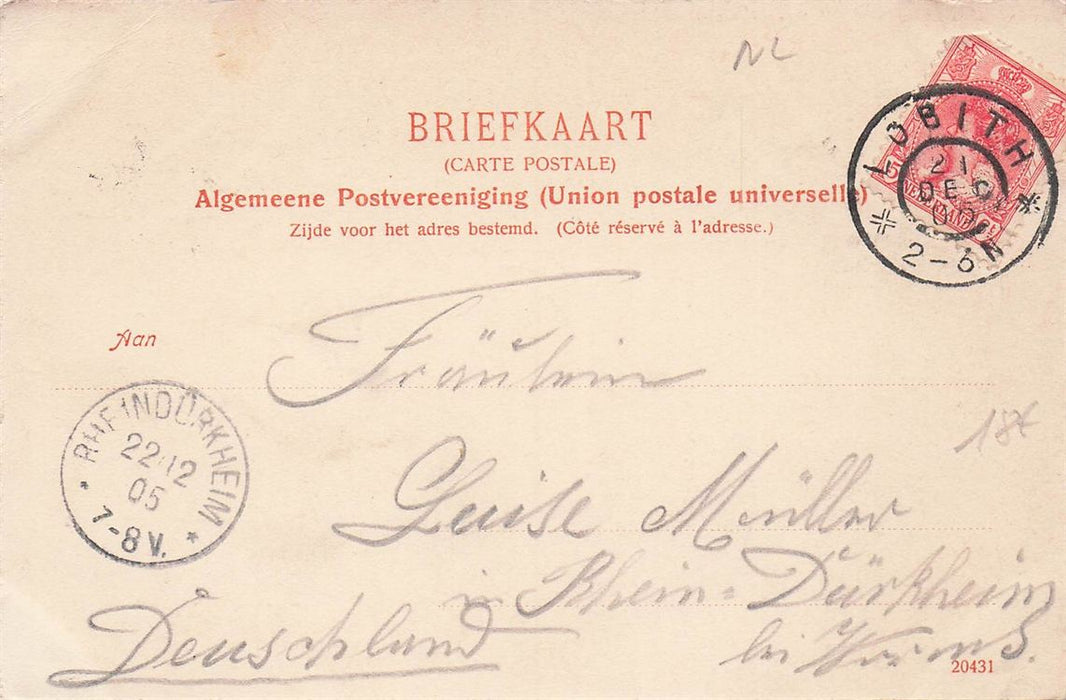 NL
BRIEFKAART
(CARTE POSTALE)
Algemeene Postvereeniging (Union postale universelle)
Zijde voor het adres bestemd. (Côté réservé à l'adresse.)
LOBITH
21
DEC
2-6N
Aan
Fräulein
RHEINDÜRKHEIM
22.12
05
7-8V.
18€
Luise Müller
in Rhein=Dürkheim
Deuschland
bei Worms.
20431